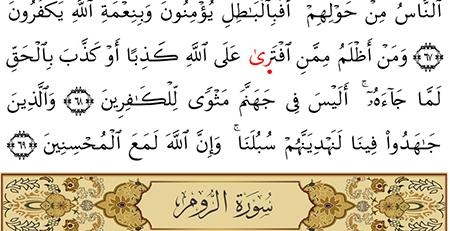 ٱلنَّاسُ مِنْ حَوْلِهِمْ ۚ أَفَبِٱلْبَـٰطِلِ يُؤْمِنُونَ وَبِنِعْمَةِ ٱللَّهِ يَكْفُرُونَ
﴿٦٧﴾ وَمَنْ أَظْلَمُ مِمَّنِ ٱفْتَرَىٰ عَلَى ٱللَّهِ كَذِبًا أَوْ كَذَّبَ بِٱلْحَقِّ
لَمَّا جَآءَهُۥٓ ۚ أَلَيْسَ فِى جَهَنَّمَ مَثْوًى لِّلْكَـٰفِرِينَ ﴿٦٨﴾ وَٱلَّذِينَ
جَـٰهَدُوا۟ فِينَا لَنَهْدِيَنَّهُمْ سُبُلَنَا ۚ وَإِنَّ ٱللَّهَ لَمَعَ ٱلْمُحْسِنِينَ ﴿٦٩﴾
سُورَةُ الرُّومِ